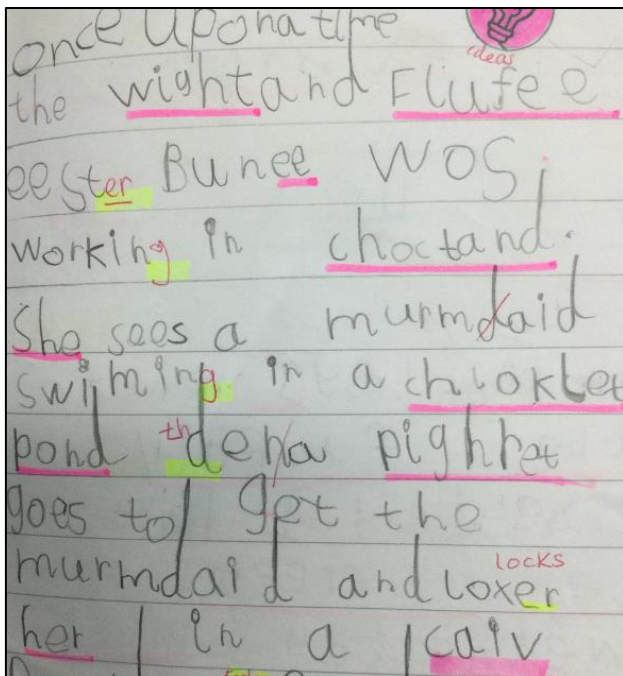 once upona time
ideas
the wight and Flufee
eester Bunee wos
working in choctand.
She sees a murmdaid
swiming in a chloklet
pond th den a pighret
goes to get the
locks
murmdaid and loxer
her in a caiv